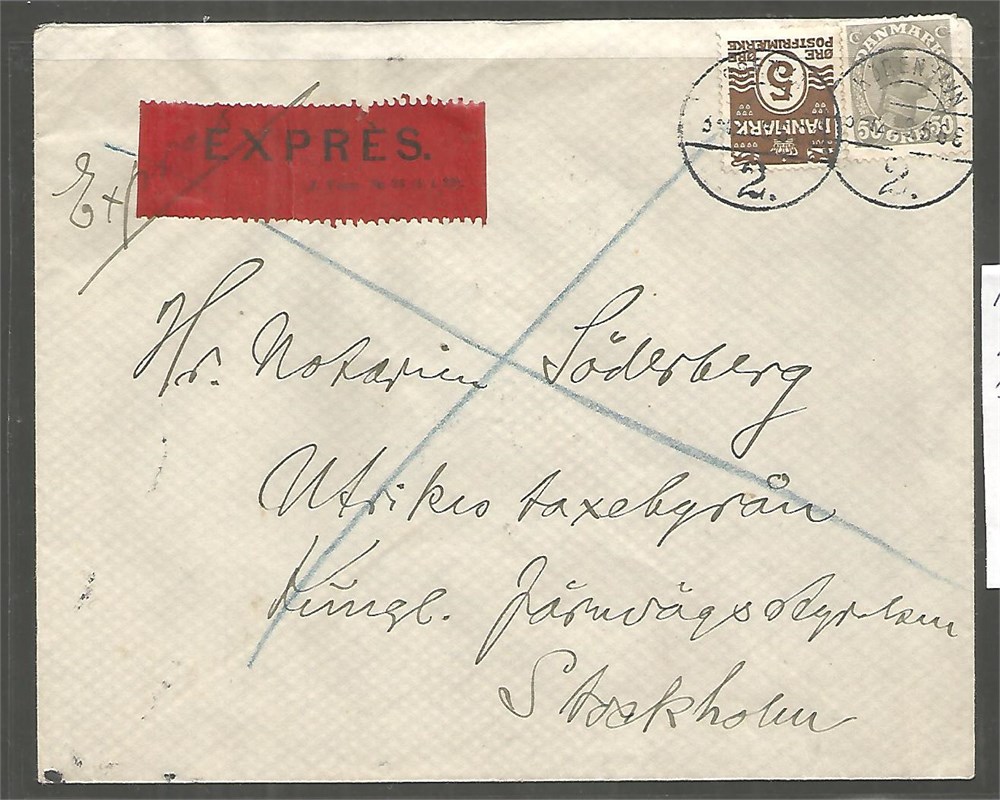 ØRE
POSTFRIMÆRKE
ØRE
5
DANMARK
DANMARK
50 ØRE 50
2.
2.
EXPRÈS.
Hr. Notarien Söderberg
Utrikes taxebyrån
Kungl. Järnvägsstyrelsen
Stockholm